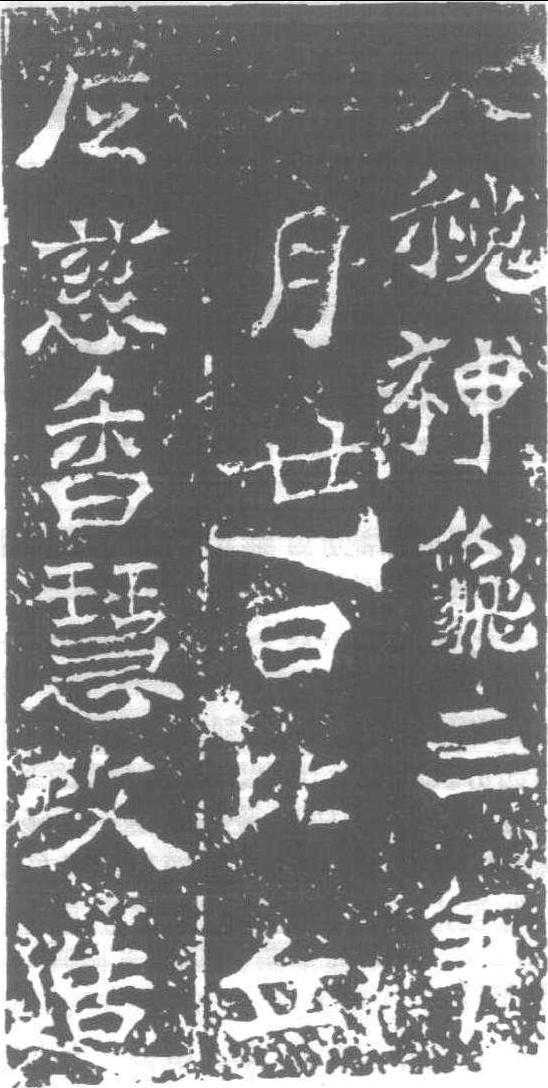 大魏神龜三年
月廿日比丘
尼慈香慧政造